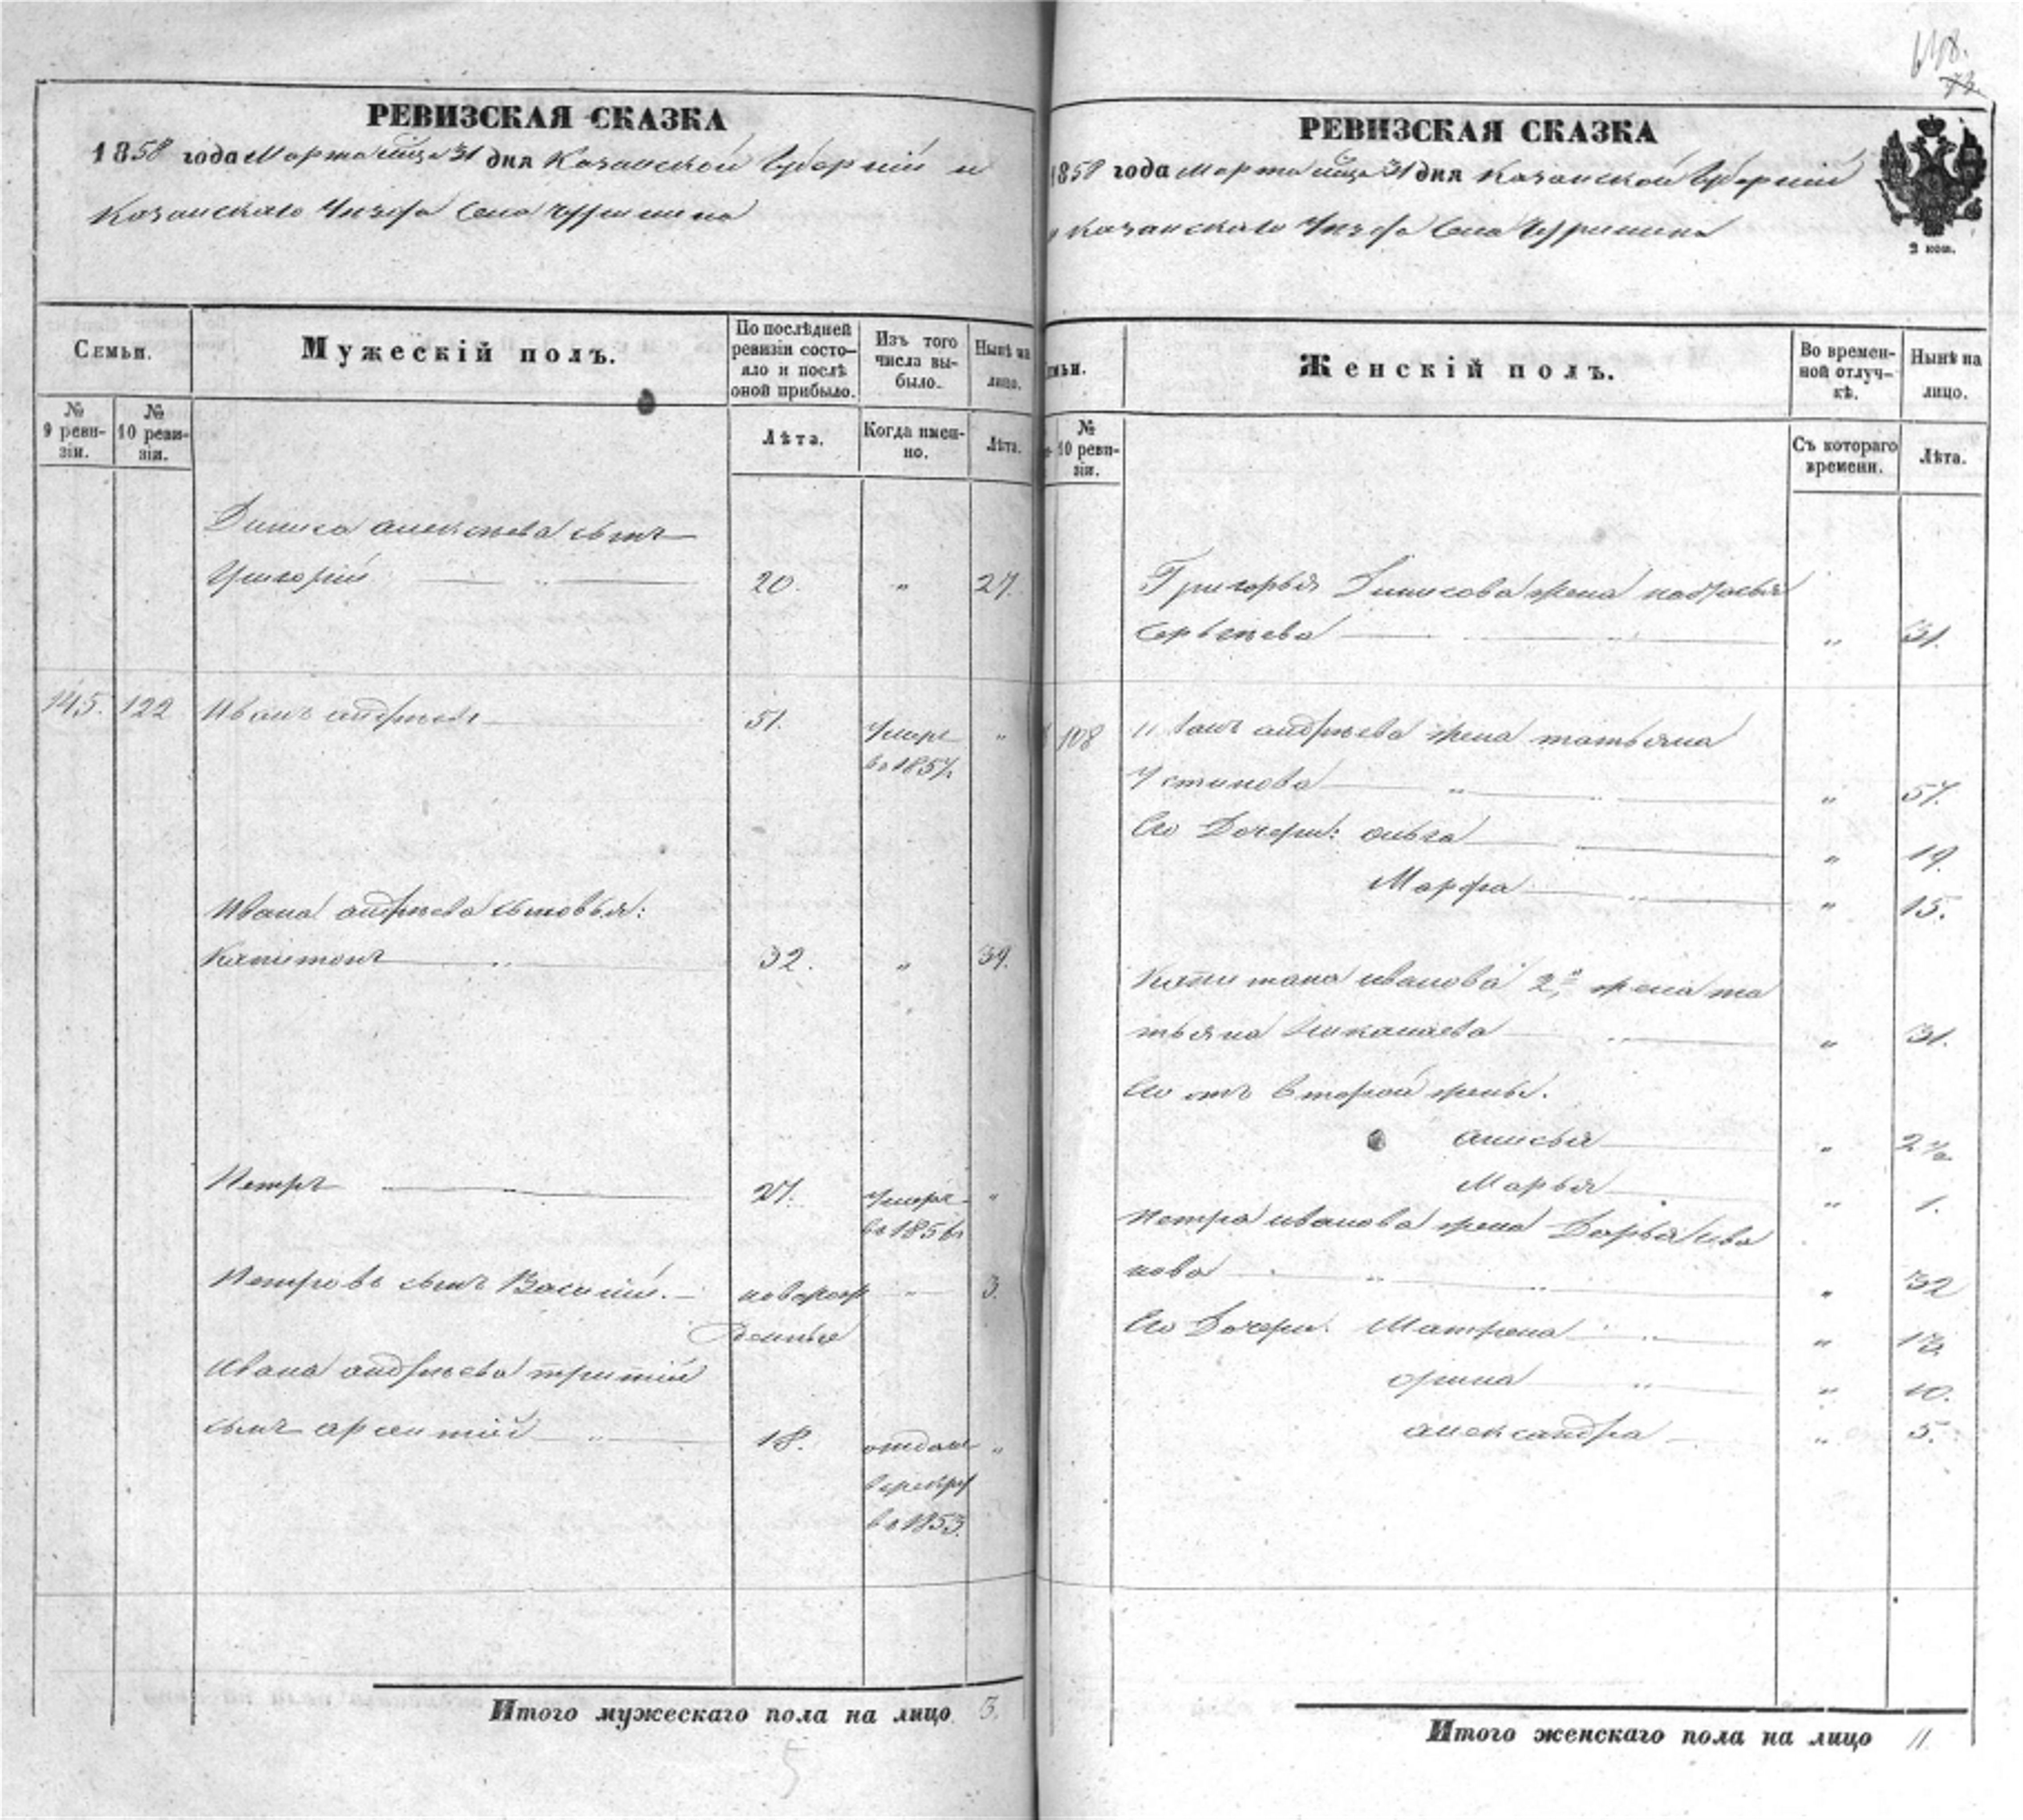 638.
73
РЕВИЗСКАЯ СКАЗКА
1858 года Марта мца 31 дня Казанской Губернiи и
Казанскаго Уизда Села
Семьи.
№ 9 реви-
зiи.
№ 10 реви-
зiи.
Мужескiй полъ.
По послѣдней
ревизiи состо-
яло и послѣ
оной прибыло.
Лѣта.
Изъ того
числа вы-
было.
Когда имен-
но.
Нынѣ на
лицо.
Лѣта.
Диниса алексѣева сынъ
Григорiй " 20. " 27.
145. 122 Иванъ андрѣевъ 51. Умеръ "
въ 1857.
Ивана андрѣева сыновья:
Капитонъ " 32. " 39.
Петръ 27. Умеръ "
въ 1856
Петровъ сынъ Василiй. новорож " 3.
денные
Ивана андрѣева третiй
сынъ арсентiй " 18. отданъ "
в рекруты
въ 1853.
Итого мужескаго пола на лицо 3.
5
РЕВИЗСКАЯ СКАЗКА
1858 года Марта мца 31 дня Казанской Губернiй
и Казанскаго Уизда Села
2 коп.
Семьи.
№
10 реви-
зiи.
Женскiй полъ.
Во времен-
ной отлуч-
кѣ.
Съ котораго
времени.
Нынѣ на
лицо.
Лѣта.
Григорья Динисова жена настасья
Сергѣева " 31.
108 Ивана андрѣева жена татьяна
Устинова " 57.
Его Дочери: ольга " 19.
Марфа " 15.
Капитана иванова 2я жена та
тьяна Николаева " 31.
Его отъ второй жены.
анисья " 2½
Марья " 1.
Петра иванова жена Дарья ива
нова " 32
Его Дочери: Матрена " 13
орина " 10.
александра " 5.
Итого женскаго пола на лицо 11.